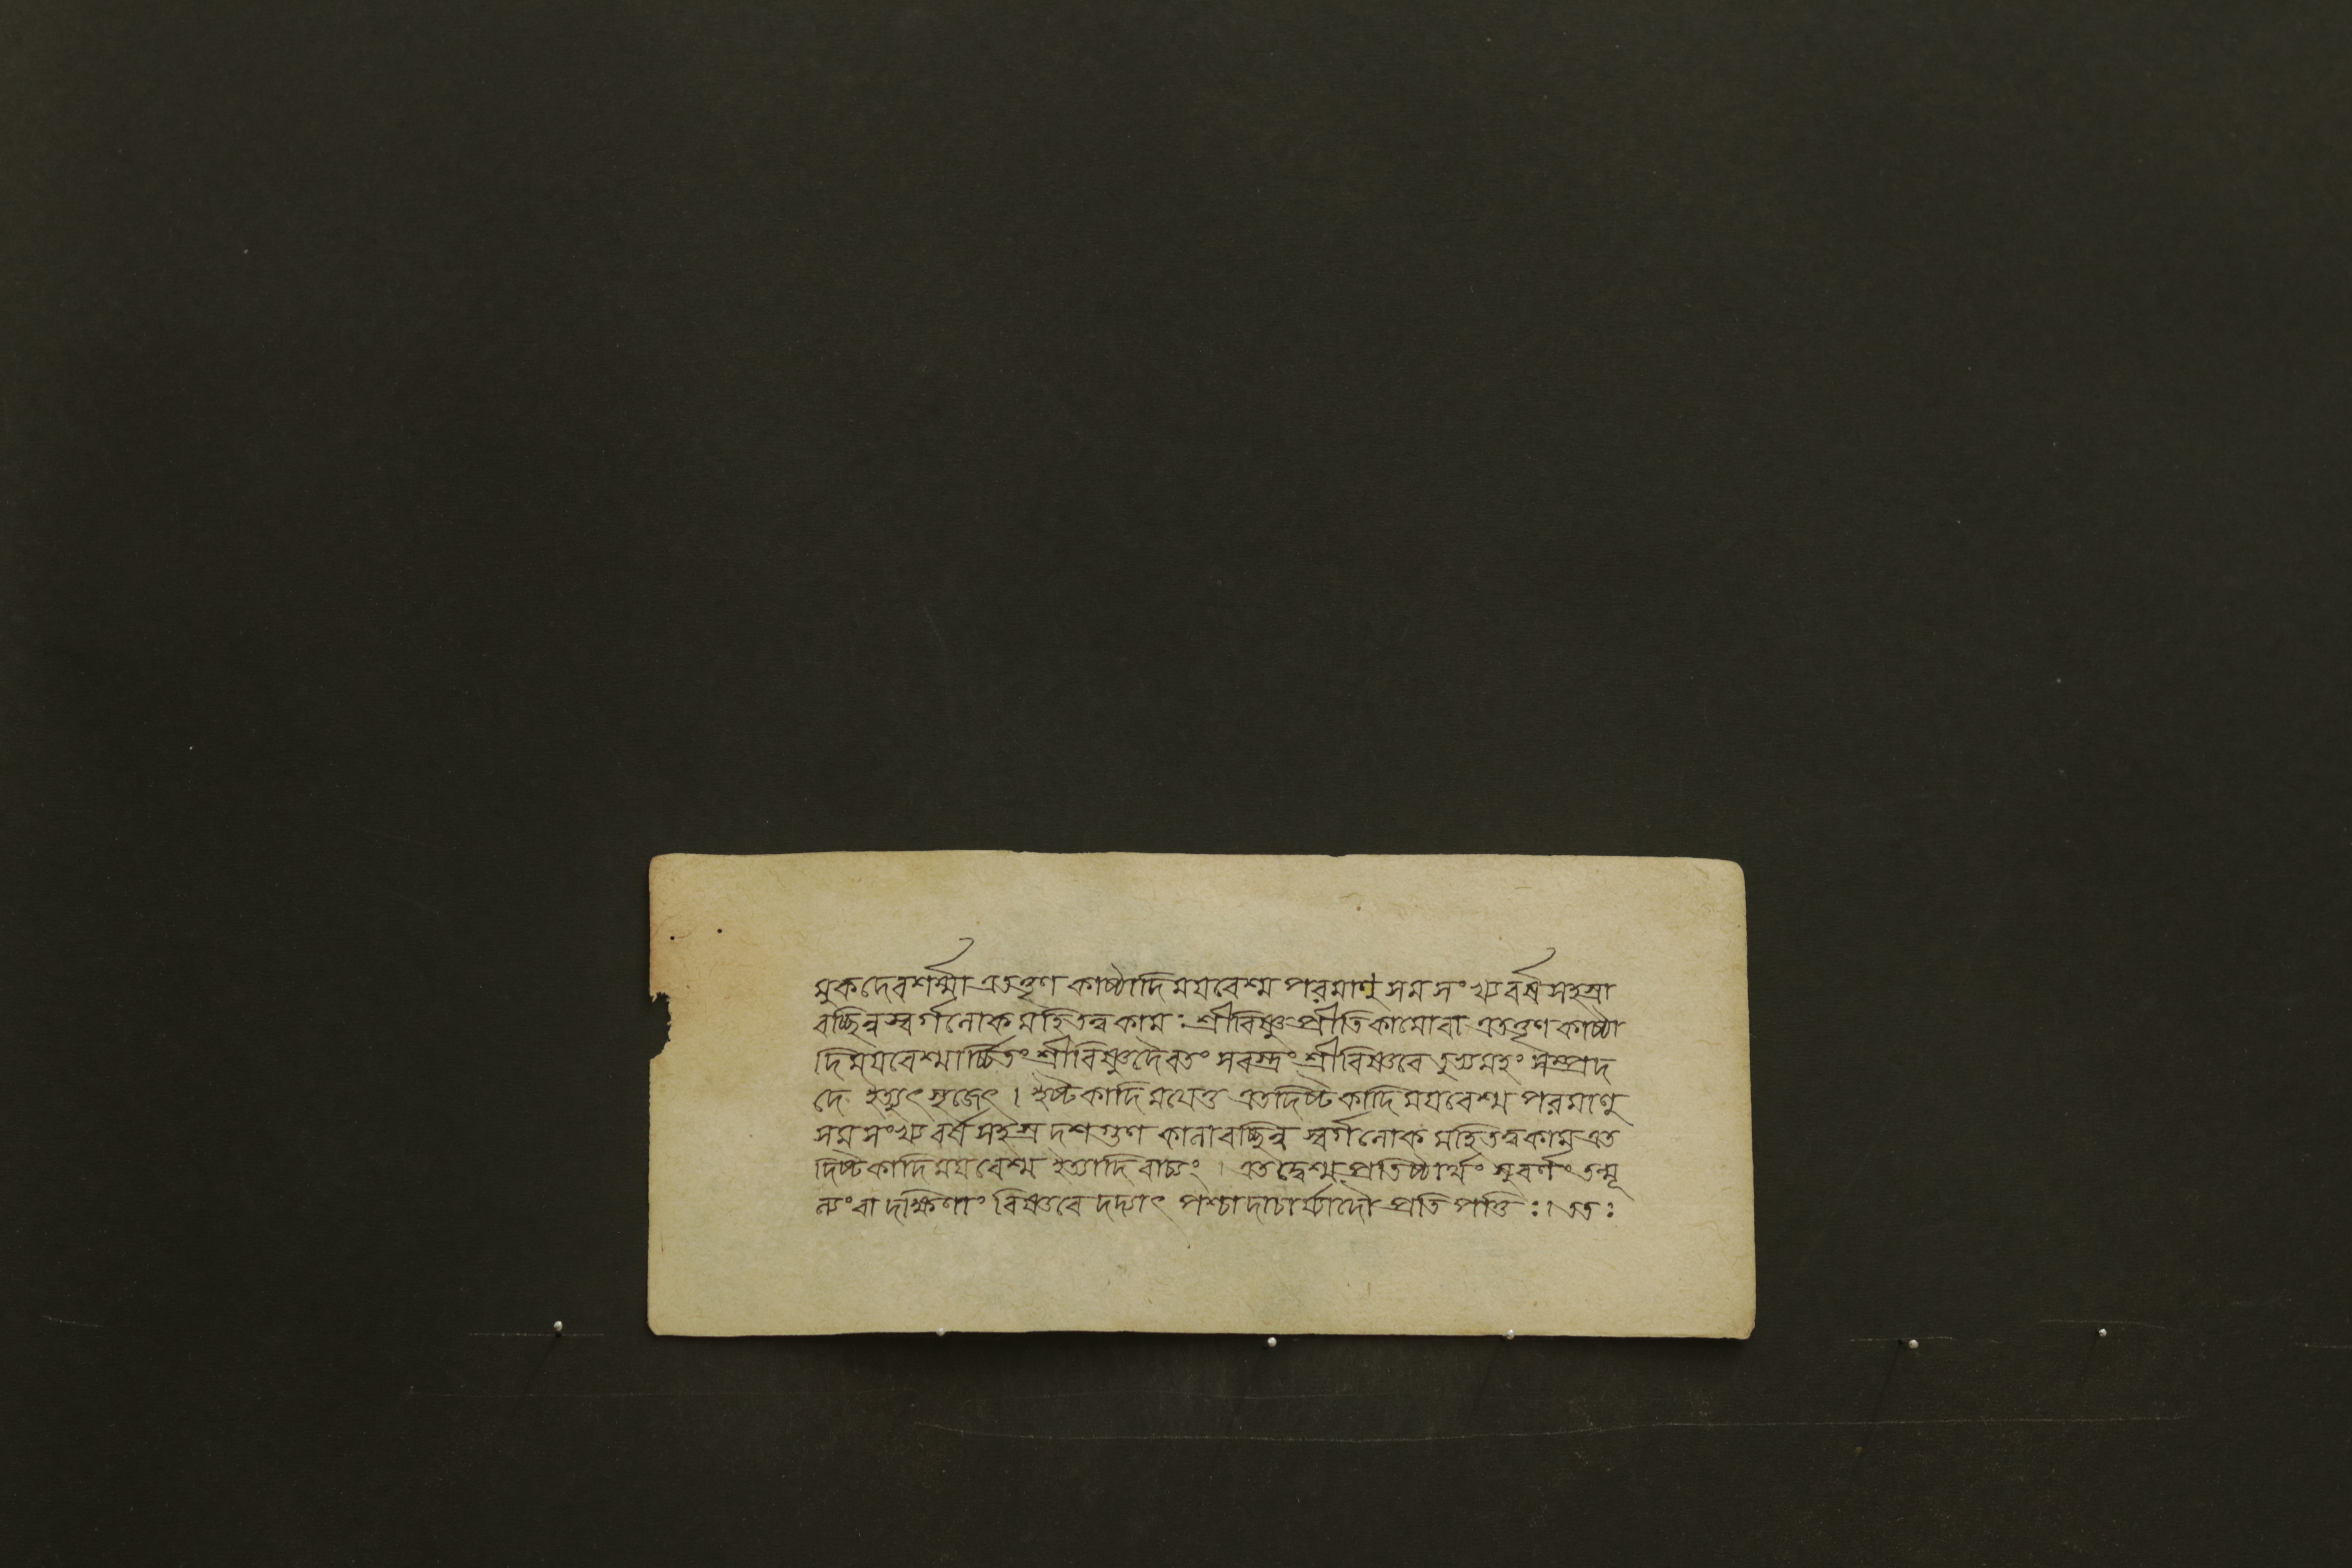 মুকদেবশর্ম্মা এতত্তৃণ কাষ্ঠাদিময়বেশ্ম পরমাণু সম সংখ্য বর্ষ সহস্রা
বচ্ছিন্ন স্বর্গলোক মহিতত্ব কামঃ শ্রীবিষ্ণু প্রীতিকামোবা এতত্তৃণ কাষ্ঠা
দিময়বেশ্মার্চ্চিতং শ্রীবিষ্ণুদৈবতং সবস্ত্রং শ্রীবিষ্ণবে তুভ্যমহং সম্প্রদ
দে ইত্যুৎসৃজেৎ । ইষ্টকাদিময়েতু এতদিষ্টকাদিময়বেশ্ম পরমাণু
সম সংখ্য বর্ষ সহস্র দশগুণ কালাবচ্ছিন্ন স্বর্গলোক মহিতত্বকাম এত
দিষ্টকাদিময়বেশ্ম ইত্যাদি বাচ্যং । এতদ্বেশ্ম প্রতিষ্ঠার্থং সুবর্ণং তন্মূ
ল্যং বা দক্ষিণাং বিষ্ণবে দদ্যাৎ পশ্চাদাচার্য্যাদৌ প্রতিপত্তিঃ । ততঃ